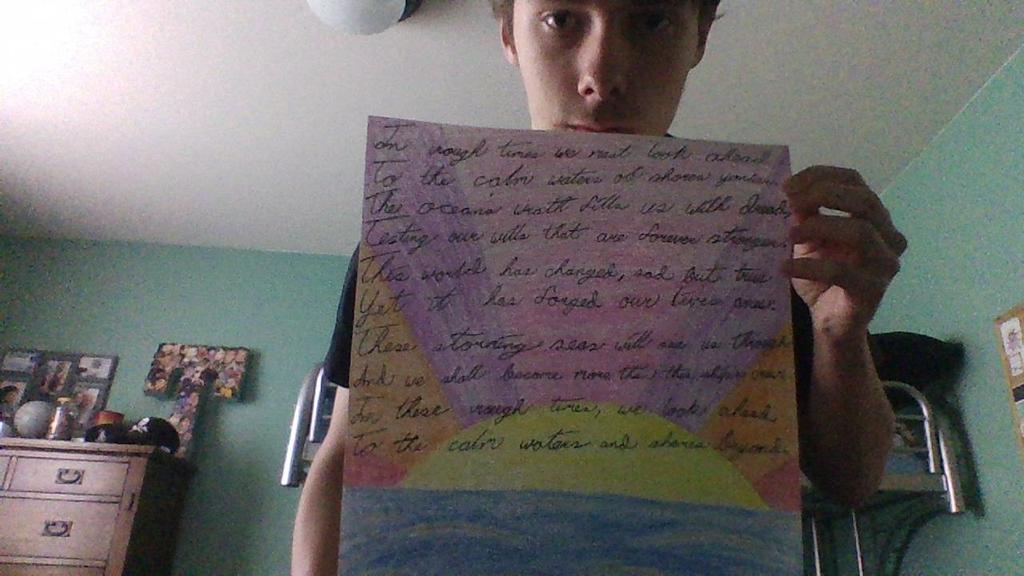 In rough times we must look ahead
To the calm waters of shores yonder.
The ocean's wrath fills us with dread,
Testing our wills that are forever stronger.
This world has changed, sad but true
Yet it has forged our lives anew.
These storming seas will see us through
And we shall become more than this ship's crew.
In these rough times, we look ahead
To the calm waters and shores beyond.